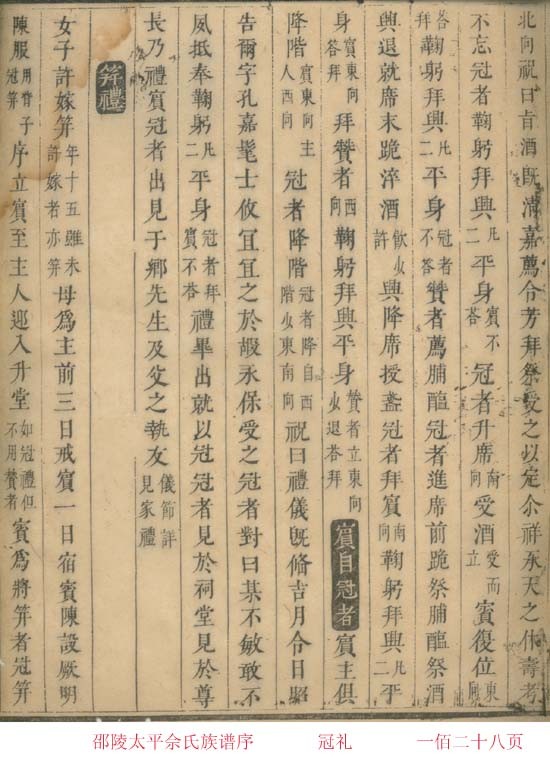 北向祝曰旨酒既清嘉薦令芳拜祭受之以定尒祥承天之休壽考
不忘冠者鞠躬拜興凡二平身賓不答冠者升席南向受酒受而立賓復位東向
各拜鞠躬拜興凡二平身冠者不答贊者薦脯醢冠者進席前跪祭脯醢祭酒
興退就席末跪淬酒飲少許興降席授盞冠者拜賓南向鞠躬拜興凡二平
身賓東向答拜拜贊者西向鞠躬拜興平身贊者立東向少退答拜賓自冠者賓主俱
降階賓東向主人西向冠者降階冠者降自西階少東南向祝曰禮儀既脩吉月令日昭
告爾字孔嘉髦士攸宜宜之於嘏永保受之冠者對曰某不敏敢不
夙祗奉鞠躬凡二平身冠者拜賓不答禮畢出就以冠冠者見於祠堂見於尊
長乃禮賓冠者出見于鄉先生及父之執友儀節詳見家禮
笄禮
女子許嫁笄年十五雖未許嫁者亦笄母爲主前三日戒賓一日宿賓陳設厥明
陳服用背子冠笄序立賓至主人迎入升堂如冠禮但不用贊者賓爲將笄者冠笄
邵陵太平佘氏族谱序 冠礼 一佰二十八页